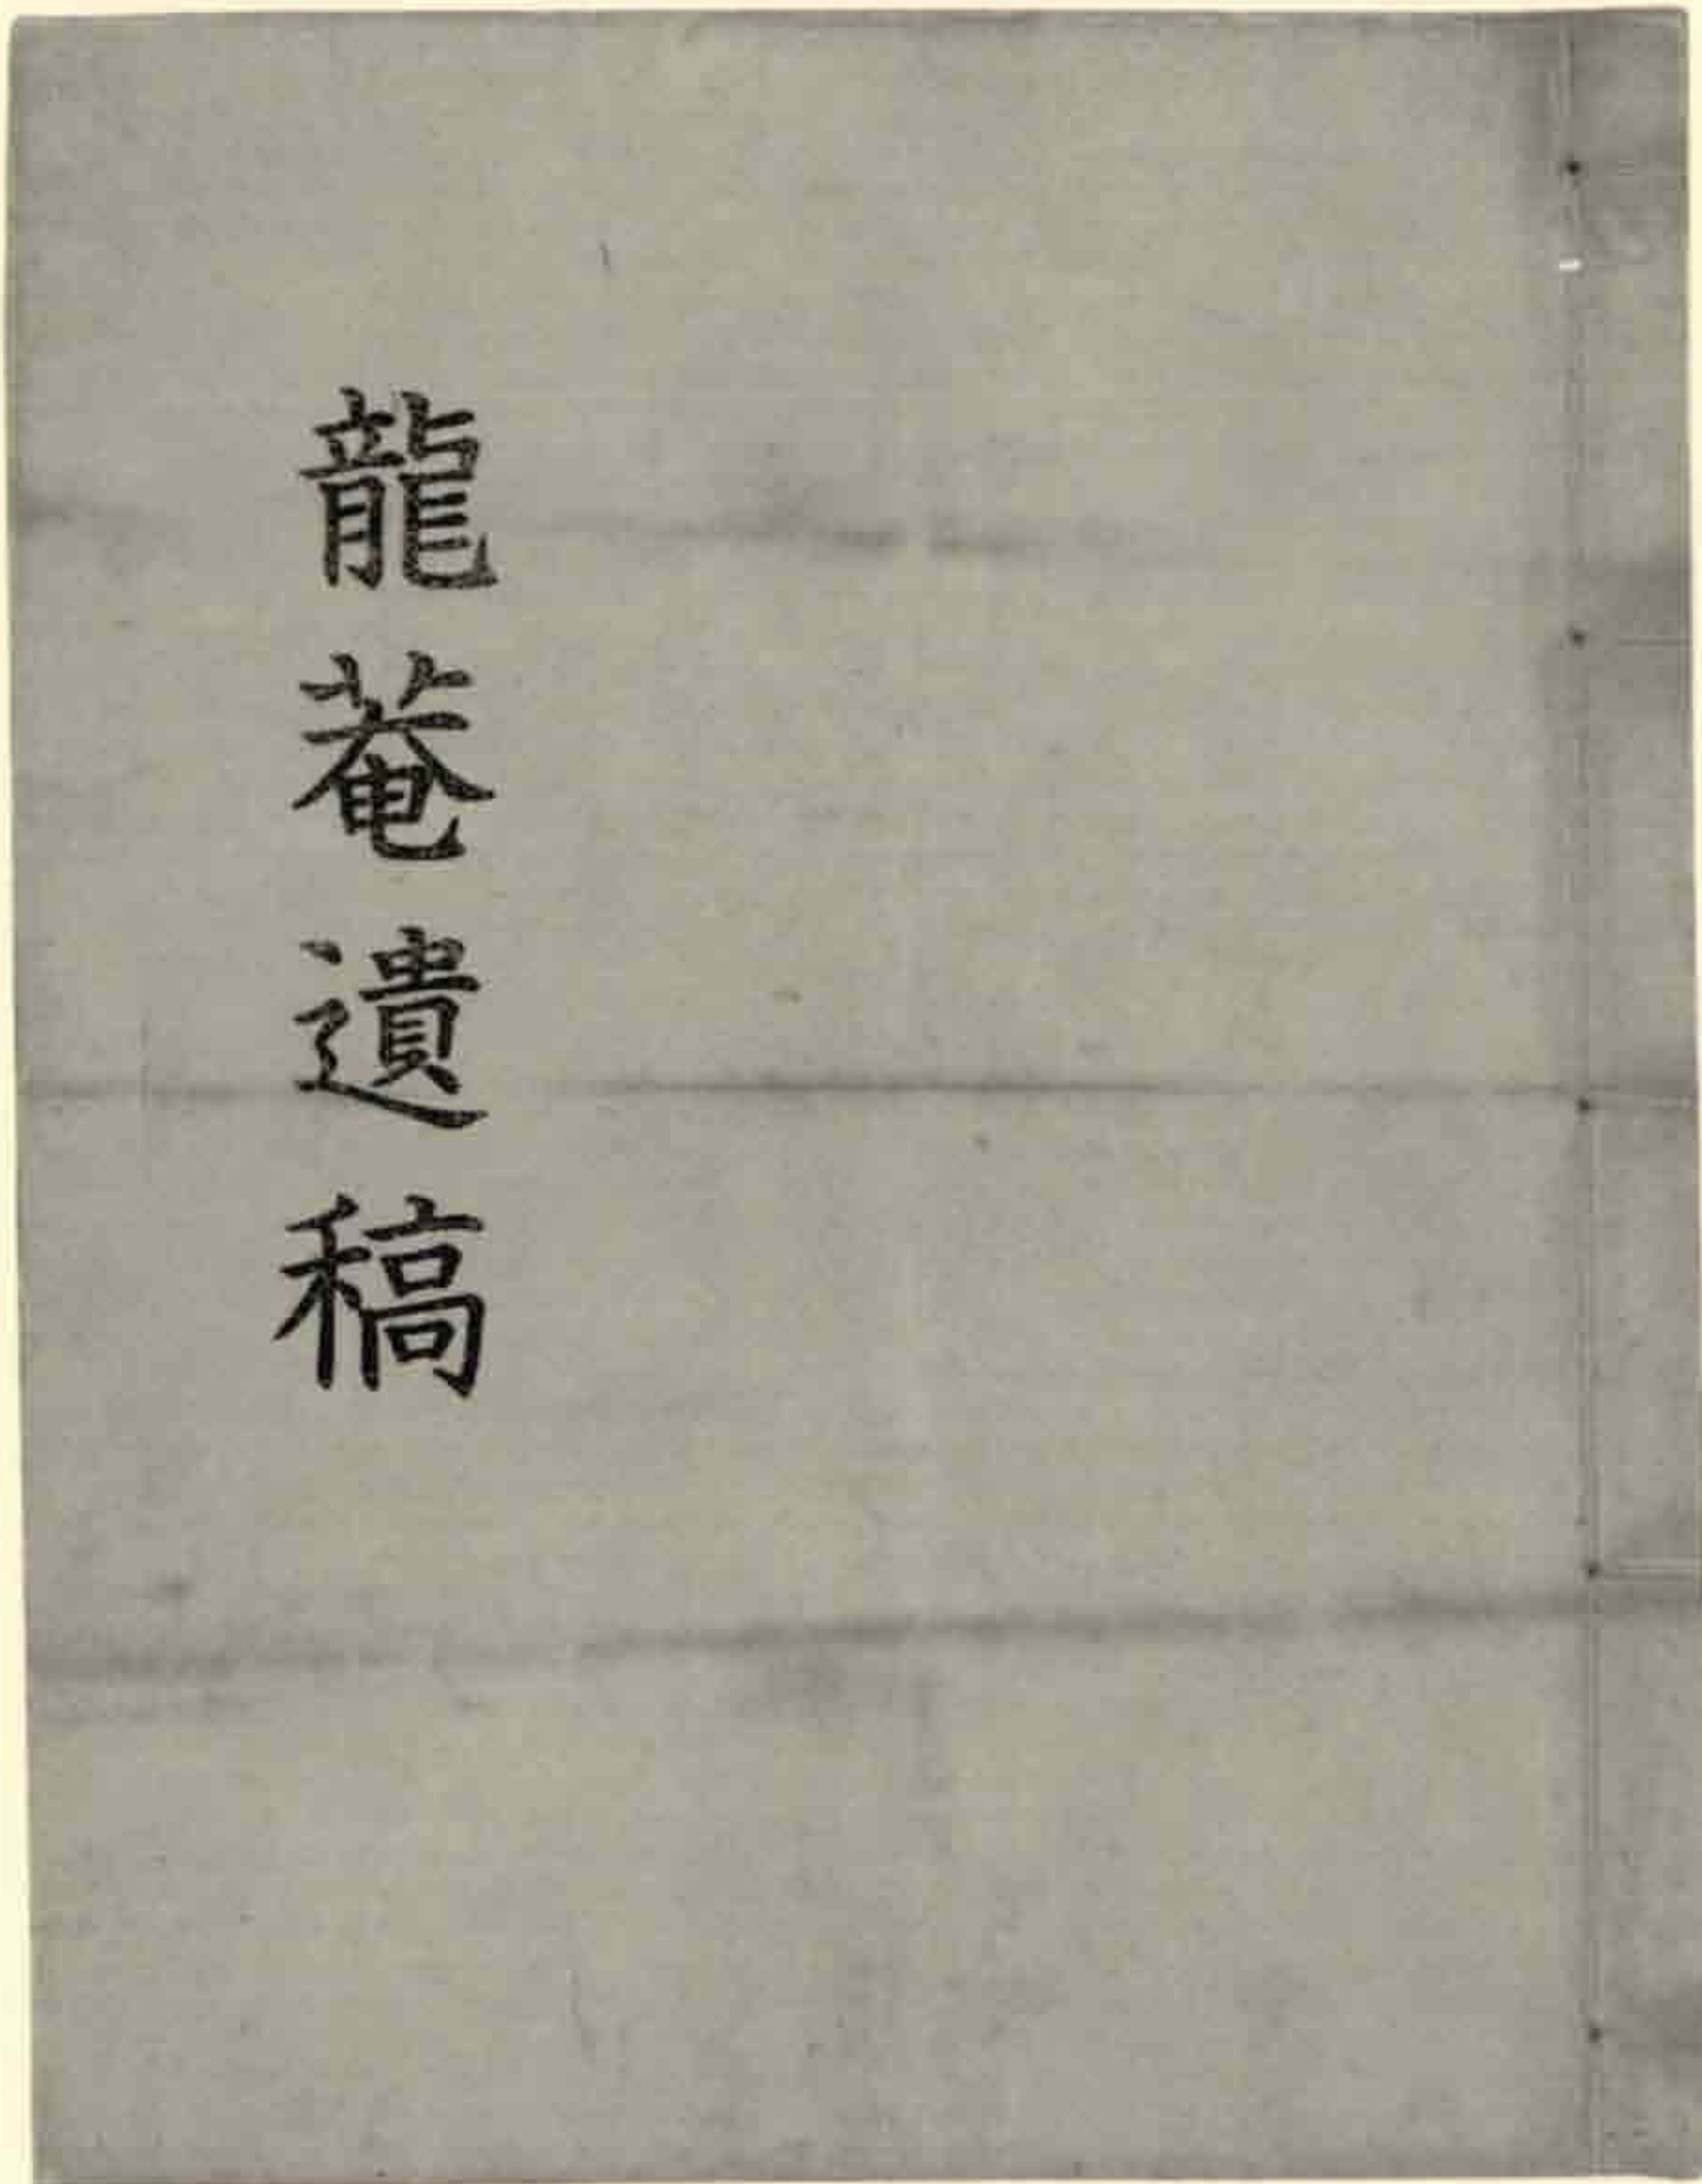 龍菴遺稿